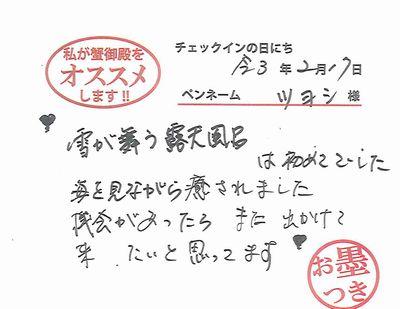 私が蟹御殿を
オススメ
します!!
チェックインの日にち
令3年2月17日
ペンネーム ツヨシ 様
雪が舞う露天風呂
は初めてでした
海を見ながら癒されました
機会があったら また 出かけて
来たいと思ってます
お墨
つき